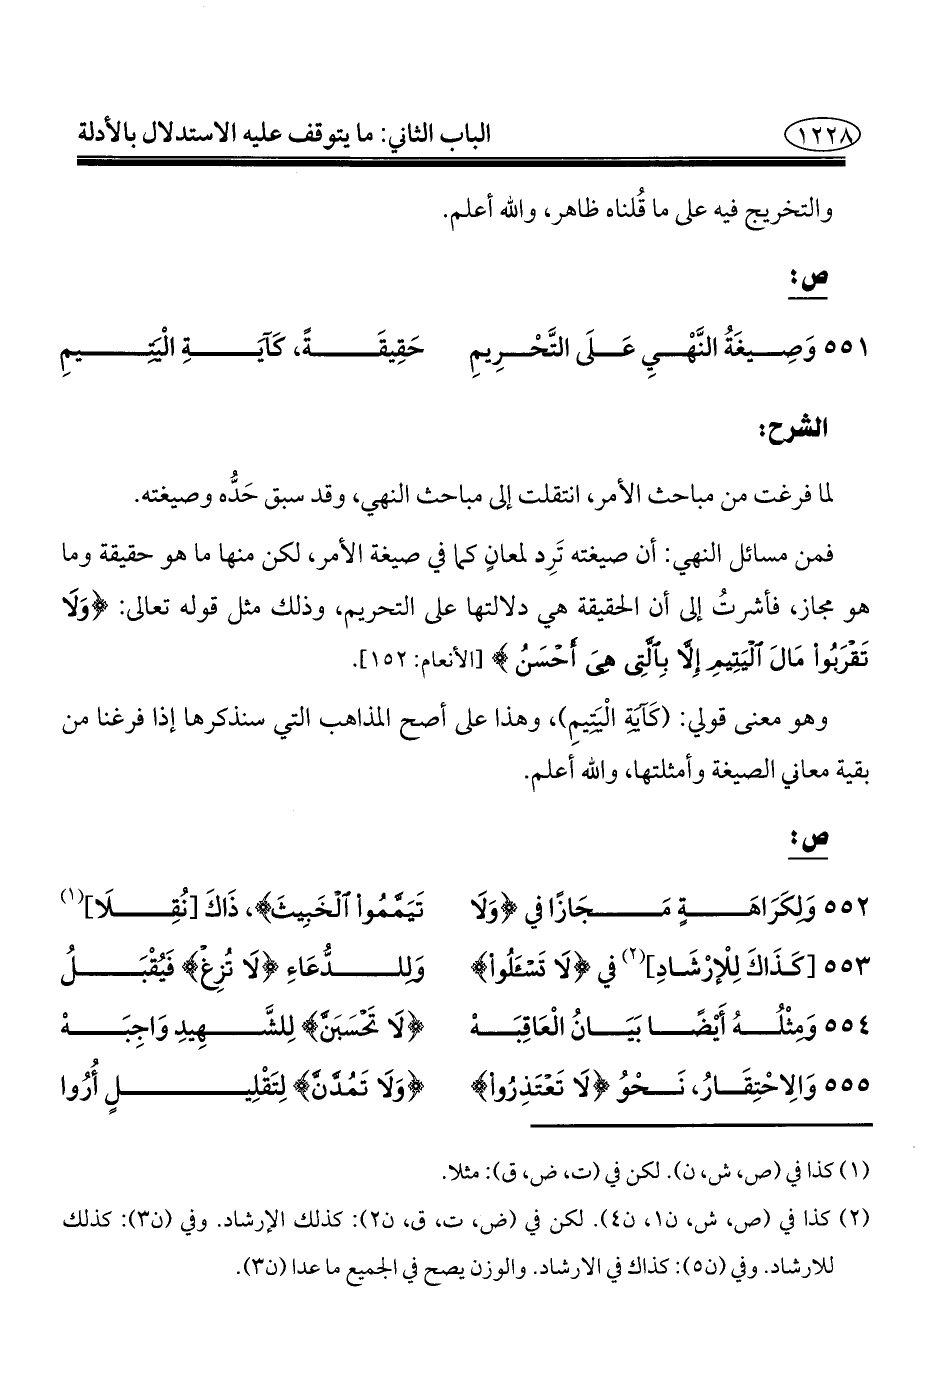 ١٢٢٨ الباب الثاني: ما يتوقف عليه الاستدلال بالأدلة
والتخريج فيه على ما قُلناه ظاهر، والله أعلم.
ص:
٥٥١ وَصِيغَةُ النَّهْيِ عَلَى التَّحْرِيمِ حَقِيقَةً، كَآيَةِ الْيَتِيمِ
الشرح:
لما فرغت من مباحث الأمر، انتقلت إلى مباحث النهي، وقد سبق حَدُّه وصيغته.
فمن مسائل النهي: أن صيغته تَرِد لمعانٍ كما في صيغة الأمر، لكن منها ما هو حقيقة وما
هو مجاز، فأشرتُ إلى أن الحقيقة هي دلالتها على التحريم، وذلك مثل قوله تعالى: ﴿وَلَا
تَقْرَبُوا۟ مَالَ ٱلْيَتِيمِ إِلَّا بِٱلَّتِى هِىَ أَحْسَنُ﴾ [الأنعام: ١٥٢].
وهو معنى قولي: (كَآيَةِ الْيَتِيمِ)، وهذا على أصح المذاهب التي سنذكرها إذا فرغنا من
بقية معاني الصيغة وأمثلتها، والله أعلم.
ص:
٥٥٢ وَلِكَرَاهَةٍ مَجَازًا في ﴿وَلَا تَيَمَّمُوا۟ ٱلْخَبِيثَ﴾، ذَاكَ [نُقِلَا](١)
٥٥٣ [كَذَاكَ لِلْإِرْشَادِ](٢) في ﴿لَا تَسْـَٔلُوا۟﴾ وَلِلدُّعَاءِ ﴿لَا تُزِغْ﴾ فَيُقْبَلُ
٥٥٤ وَمِثْلُهُ أَيْضًا بَيَانُ الْعَاقِبَهْ ﴿لَا تَحْسَبَنَّ﴾ لِلشَّهِيدِ وَاجِبَهْ
٥٥٥ وَالِاحْتِقَارُ، نَحْوُ ﴿لَا تَعْتَذِرُوا۟﴾ ﴿وَلَا تَمُدَّنَّ﴾ لِتَقْلِيلٍ أُرُوا
(١) كذا في (ص، ش، ن). لكن في (ت، ض، ق): مثلا.
(٢) كذا في (ص، ش، ن١، ن٤). لكن في (ض، ت، ق، ن٢): كذلك الإرشاد. وفي (ن٣): كذلك
للارشاد. وفي (ن٥): كذاك في الارشاد. والوزن يصح في الجميع ما عدا (ن٣).